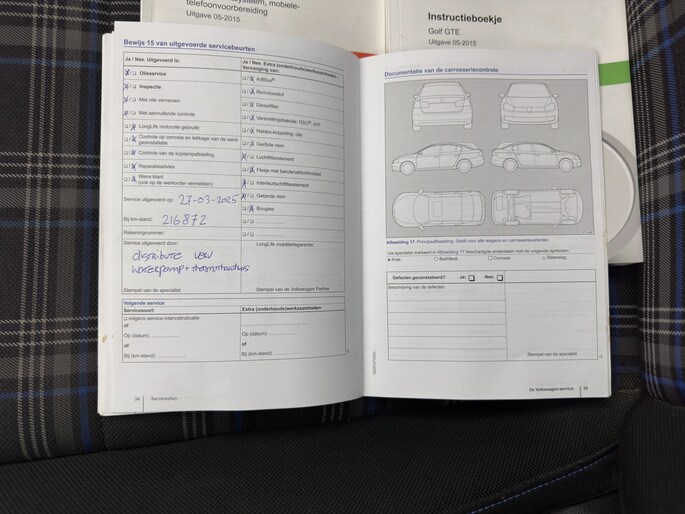 systeem, mobiele-
telefoonvoorbereiding
Uitgave 05-2015
Instructieboekje
Golf GTE
Uitgave 05-2015
Bewijs 15 van uitgevoerde servicebeurten
Ja / Nee. Uitgevoerd is:
Olieservice
Inspectie
Met olie verversen
Met aanvullende controle
LongLife motorolie gebruikt
Controle op corrosie en lekkage van de aard-
gasinstallatie
Controle van de koplampafstelling
Reparatieadvies
Wens klant
(ook op de werkorder vermelden)
Service uitgevoerd op: 27-03-2025
Bij km-stand: 216872
Rekeningnummer:
Service uitgevoerd door:
distributie
waterpomp + thermothuis
Stempel van de specialist
Ja / Nee. Extra (onderhouds)werkzaamheden:
Vervanging van:
AdBlue®
Remvloeistof
Dieselfilter
Versnellingsbakolie: DSG®, A/V
Haldex-koppeling: olie
Geribde riem
Luchtfilterelement
Flesje met bandenafdichtmiddel
Interieurluchtfilterelement
Getande riem
Bougies
LongLife mobiliteitsgarantie:
Stempel van de Volkswagen Partner
Volgende service
Servicesoort
volgens service-intervalindicatie
of
Op (datum):
of
Bij (km-stand):
Extra (onderhouds)werkzaamheden
Op (datum):
of
Bij (km-stand):
34 Serviceplan
Documentatie van de carrosseriecontrole
Afbeelding 17 Principeafbeelding. Geldt voor alle wagens en carrosserievarianten
Uw specialist markeert in Afbeelding 17 beschadigde onderdelen met de volgende symbolen:
Kras Buil/deuk Corrosie Steenslag
Defecten geconstateerd? Ja: Nee:
Beschrijving van de defecten:
Stempel van de specialist
De Volkswagen-service 35